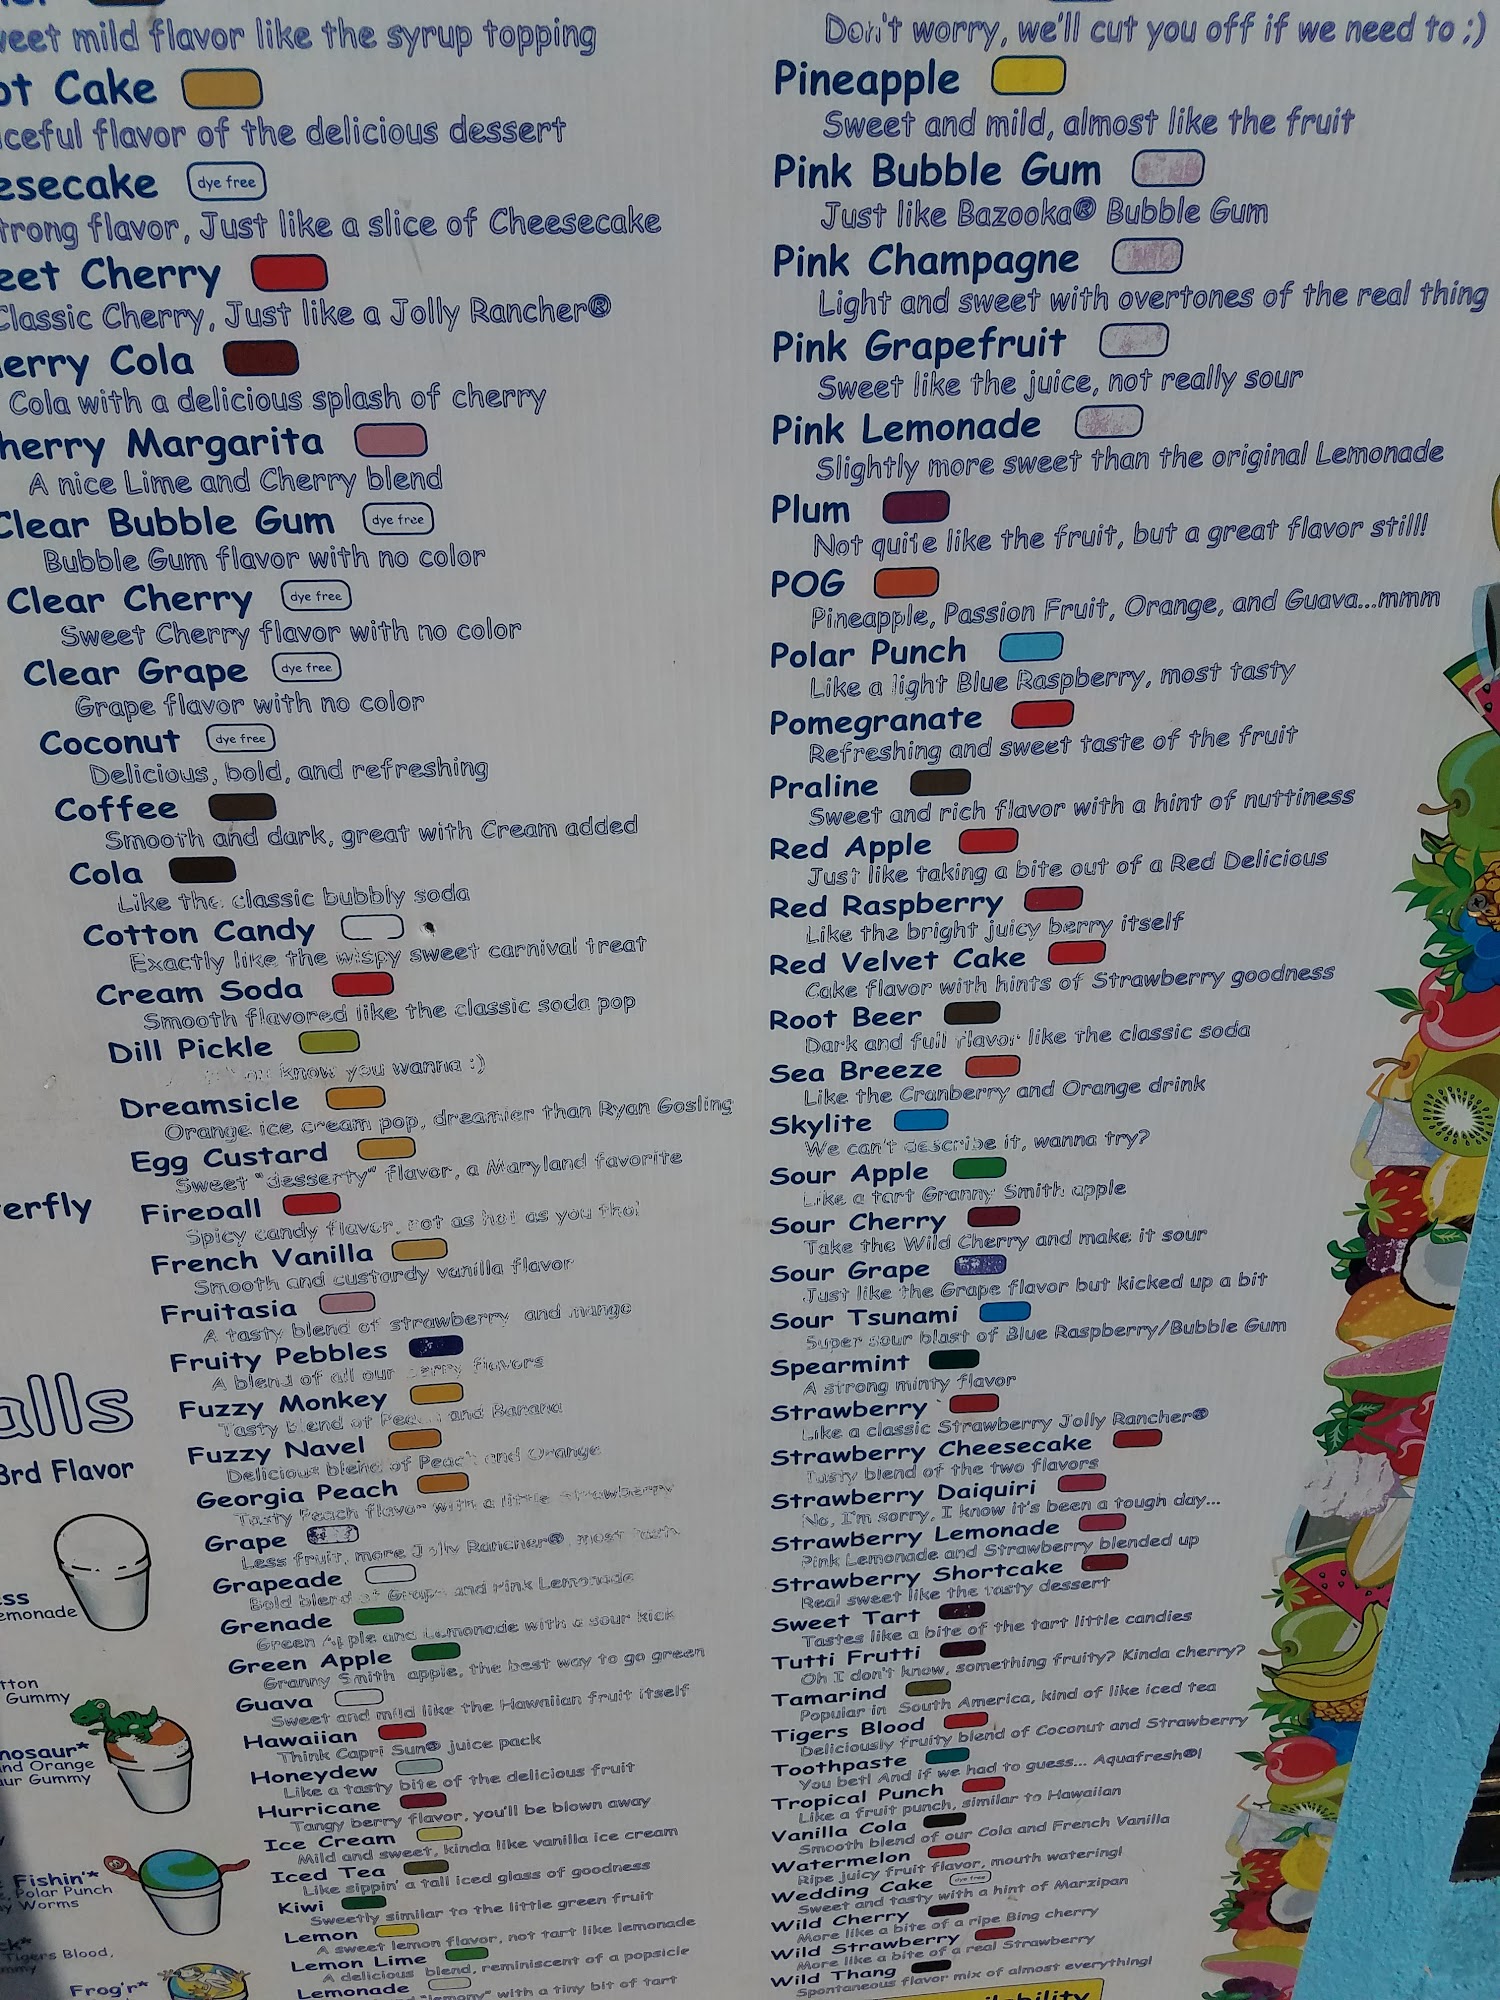 sweet mild flavor like the syrup topping
Cake
flavor of the delicious dessert
dye free
strong flavor, Just like a slice of Cheesecake
Cherry
Classic Cherry, Just like a Jolly Rancher®
Cola
Cola with a delicious splash of cherry
Margarita
A nice Lime and Cherry blend
Clear Bubble Gum dye free
Bubble Gum flavor with no color
Clear Cherry dye free
Sweet Cherry flavor with no color
Clear Grape dye free
Grape flavor with no color
Coconut dye free
Delicious, bold, and refreshing
Coffee
Smooth and dark, great with Cream added
Cola
Like the classic bubbly soda
Cotton Candy
Exactly like the wispy sweet carnival treat
Cream Soda
Smooth flavored like the classic soda pop
Dill Pickle
know you wanna :)
Dreamsicle
Orange ice cream pop, dreamier than Ryan Gosling
Egg Custard
Sweet "desserty" flavor, a Maryland favorite
Fireball
Spicy candy flavor, not as hot as you tho!
French Vanilla
Smooth and custardy vanilla flavor
Fruitasia
A tasty blend of strawberry and mango
Fruity Pebbles
A blend of all our berry flavors
Fuzzy Monkey
Tasty blend of Peach and Banana
Fuzzy Navel
Delicious blend of Peach and Orange
Georgia Peach
Tasty Peach flavor with a little Strawberry
Grape
Less fruit, more Jolly Rancher®, most tasty
Grapeade
Bold blend of Grape and Pink Lemonade
Grenade
Green Apple and Lemonade with a sour kick
Green Apple
Granny Smith apple, the best way to go green
Guava
Sweet and mild like the Hawaiian fruit itself
Hawaiian
Think Capri Sun® juice pack
Honeydew
Like a tasty bite of the delicious fruit
Hurricane
Tangy berry flavor, you'll be blown away
Ice Cream
Mild and sweet, kinda like vanilla ice cream
Iced Tea
Like sippin' a tall iced glass of goodness
Kiwi
Sweetly similar to the little green fruit
Lemon
A sweet lemon flavor, not tart like lemonade
Lemon Lime
A delicious blend, reminiscent of a popsicle
Lemonade
"lemony" with a tiny bit of tart
3rd Flavor
emonade
Gummy
and Orange
Gummy
Fishin'*
Polar Punch
Worms
Tigers Blood,
Frog'r*
Don't worry, we'll cut you off if we need to ;)
Pineapple
Sweet and mild, almost like the fruit
Pink Bubble Gum
Just like Bazooka® Bubble Gum
Pink Champagne
Light and sweet with overtones of the real thing
Pink Grapefruit
Sweet like the juice, not really sour
Pink Lemonade
Slightly more sweet than the original Lemonade
Plum
Not quite like the fruit, but a great flavor still!
POG
Pineapple, Passion Fruit, Orange, and Guava...mmm
Polar Punch
Like a light Blue Raspberry, most tasty
Pomegranate
Refreshing and sweet taste of the fruit
Praline
Sweet and rich flavor with a hint of nuttiness
Red Apple
Just like taking a bite out of a Red Delicious
Red Raspberry
Like the bright juicy berry itself
Red Velvet Cake
Cake flavor with hints of Strawberry goodness
Root Beer
Dark and full flavor like the classic soda
Sea Breeze
Like the Cranberry and Orange drink
Skylite
We can't describe it, wanna try?
Sour Apple
Like a tart Granny Smith apple
Sour Cherry
Take the Wild Cherry and make it sour
Sour Grape
Just like the Grape flavor but kicked up a bit
Sour Tsunami
Super sour blast of Blue Raspberry/Bubble Gum
Spearmint
A strong minty flavor
Strawberry
Like a classic Strawberry Jolly Rancher®
Strawberry Cheesecake
Tasty blend of the two flavors
Strawberry Daiquiri
No, I'm sorry, I know it's been a tough day...
Strawberry Lemonade
Pink Lemonade and Strawberry blended up
Strawberry Shortcake
Real sweet like the tasty dessert
Sweet Tart
Tastes like a bite of the tart little candies
Tutti Frutti
Oh I don't know, something fruity? Kinda cherry?
Tamarind
Popular in South America, kind of like iced tea
Tigers Blood
Deliciously fruity blend of Coconut and Strawberry
Toothpaste
You bet! And if we had to guess... Aquafresh®!
Tropical Punch
Like a fruit punch, similar to Hawaiian
Vanilla Cola
Smooth blend of our Cola and French Vanilla
Watermelon
Ripe juicy fruit flavor, mouth watering!
Wedding Cake dye free
Sweet and tasty with a hint of Marzipan
Wild Cherry
More like a bite of a ripe Bing cherry
Wild Strawberry
More like a bite of a real Strawberry
Wild Thang
Spontaneous flavor mix of almost everything!